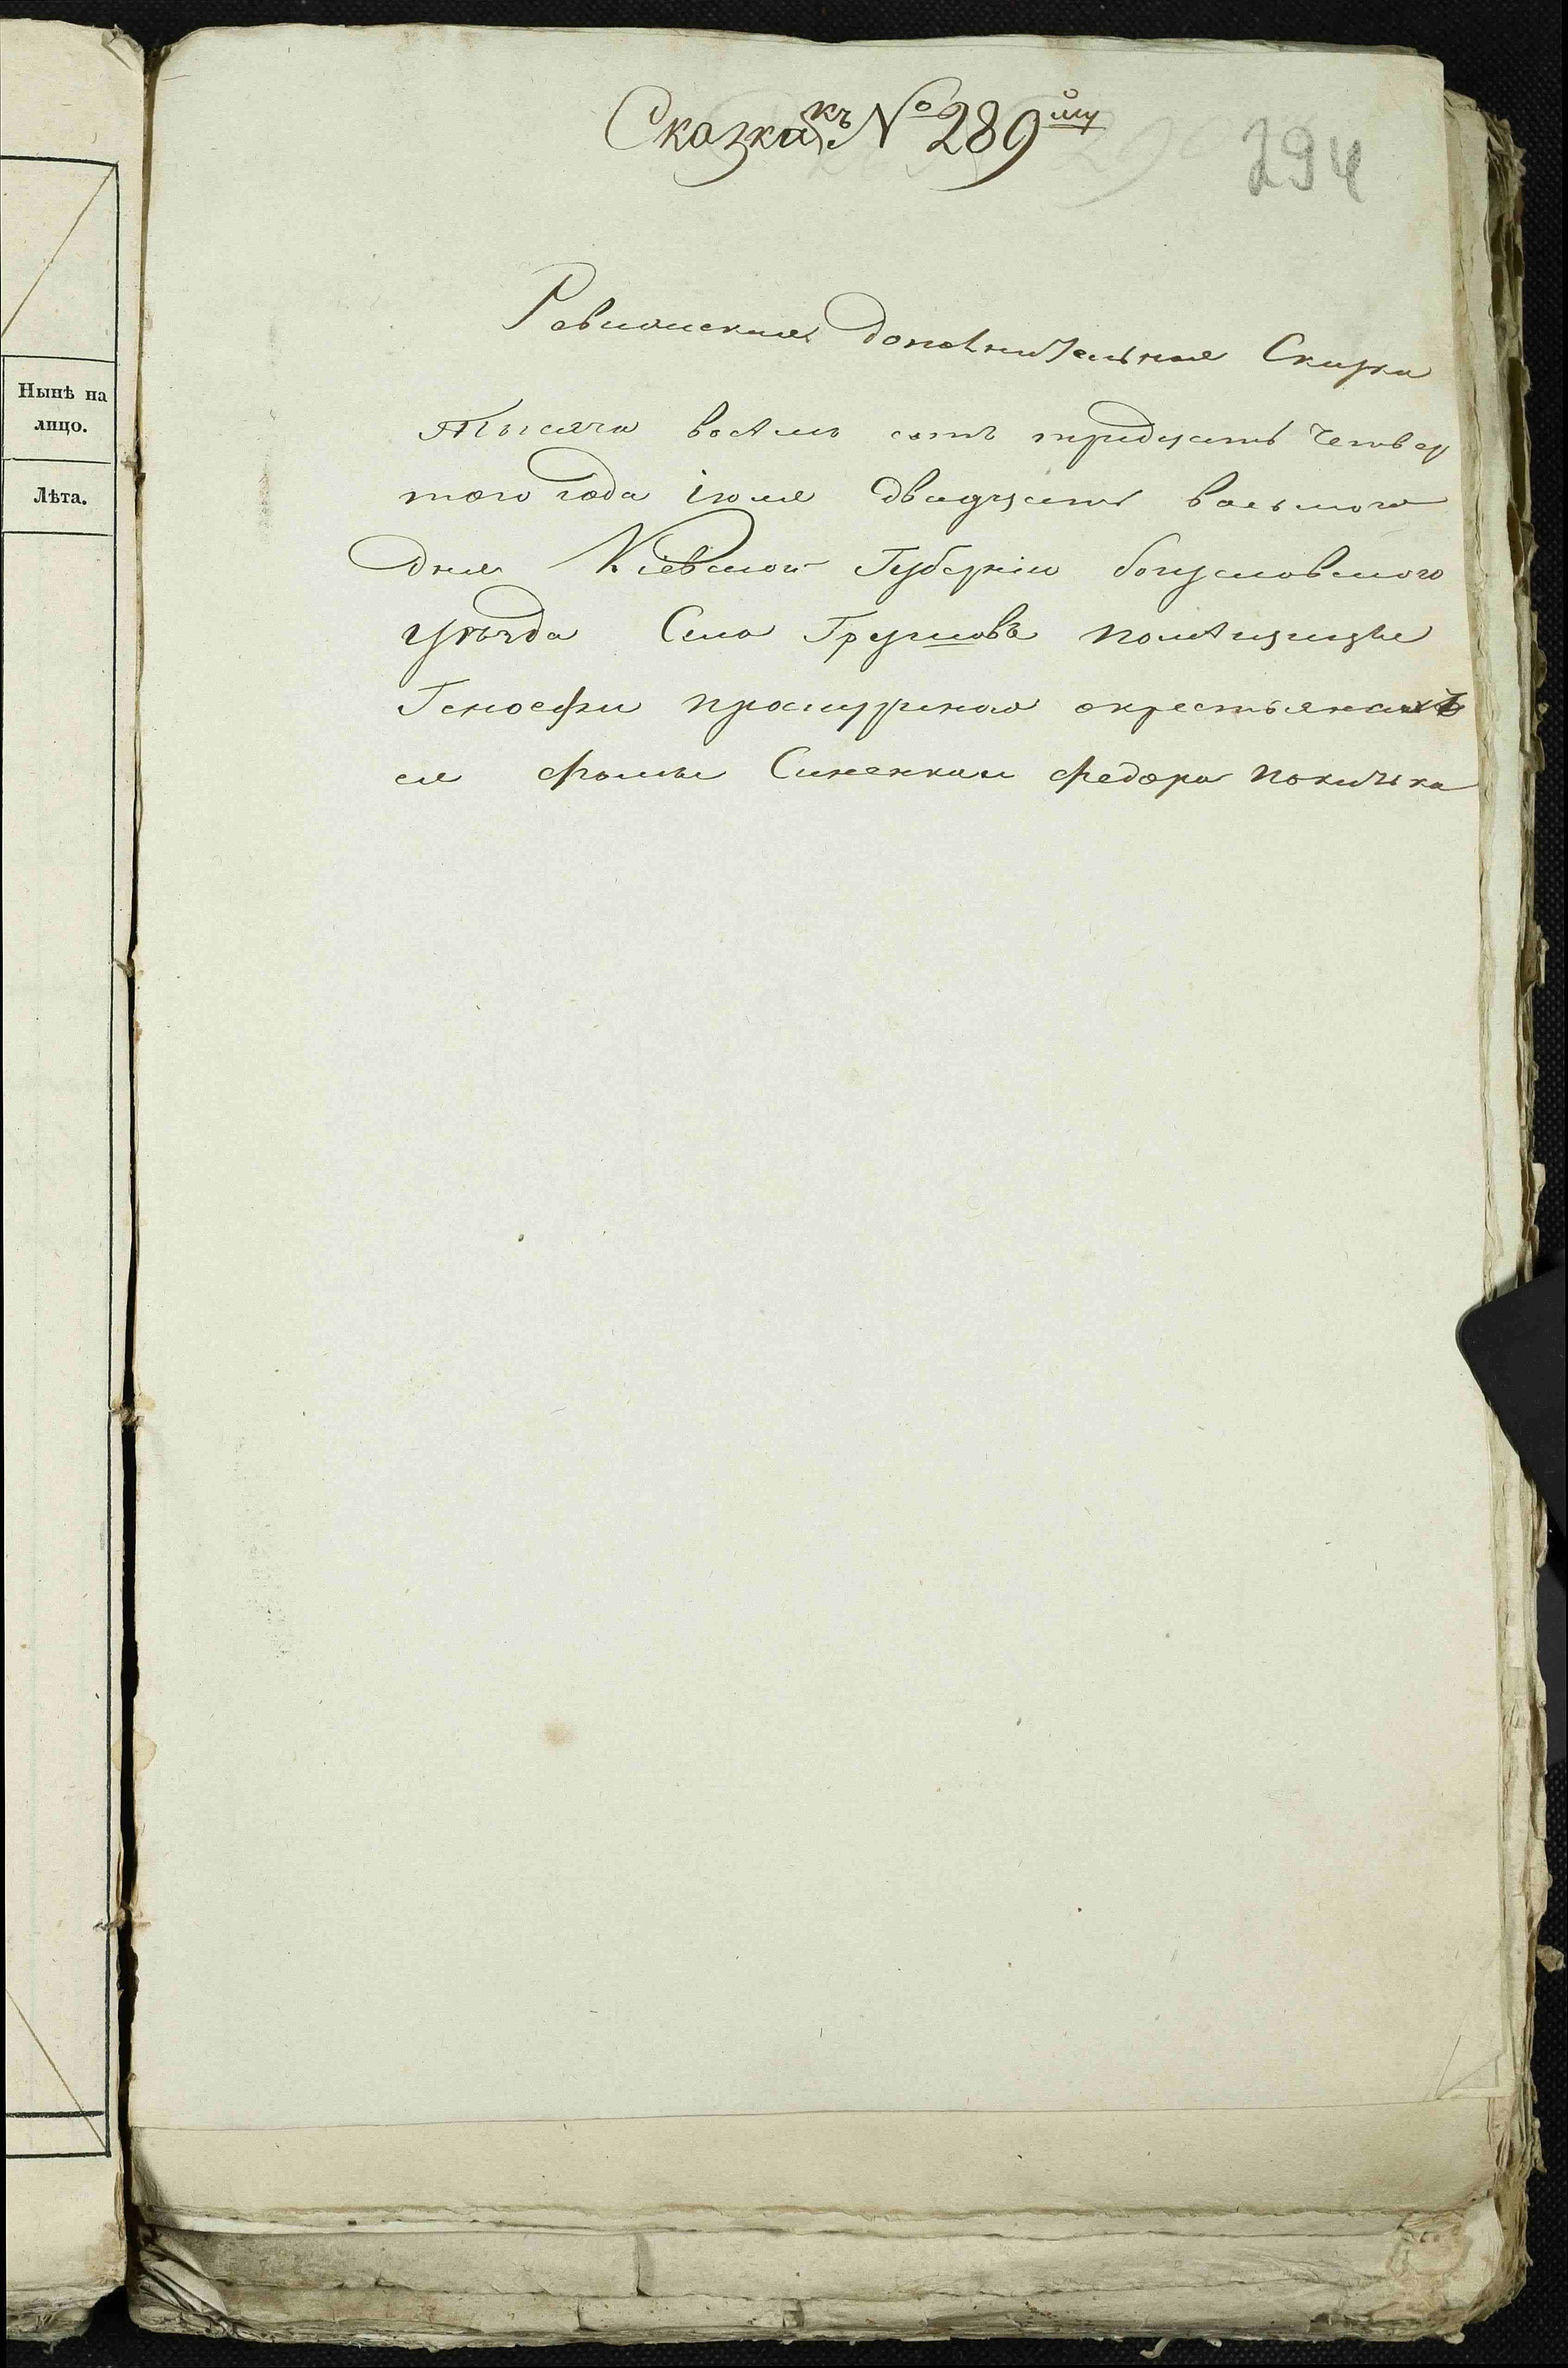 Нынѣ на
лицо.
Лѣта.
Сказка къ № 289му
294
Ревизская дополнительная Сказка
Тысяча восемь сотъ тридцать четвер
того года июля двадцать восьмого
дня Кіевской Губерніи богуславского
уѣзда Села помѣщицы
окрестьянахъ
ея фомы Синенка и федора